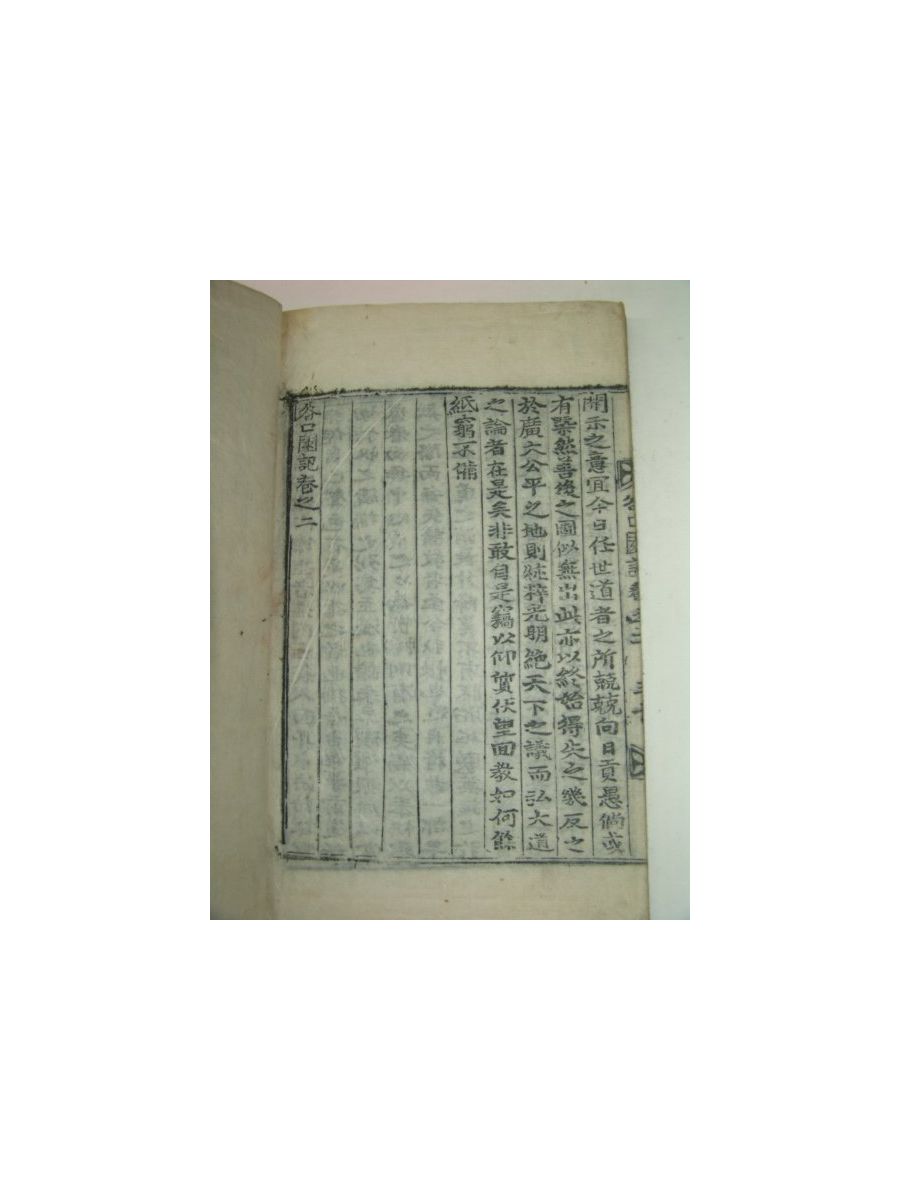 開示之意宜今日任世道者之所兢兢向日貢愚倘或
有槩然善後之圖似無出此亦以終始得失之幾反之
於廣大公平之地則純粹光明絶天下之議而弘大道
之論者在是矣非敢自是竊以仰質伏望回敎如何餘
紙窮不備
答口圖記卷之二